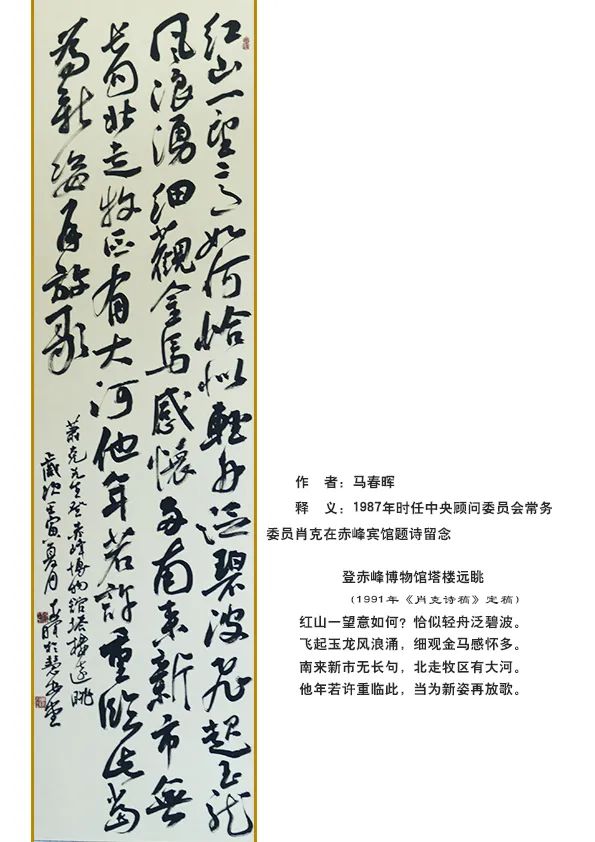 红山一望意如何恰似輕舟泛碧波飞起玉龙
风浪湧细觀金馬感懷多南来新市無
長句北走牧区有大河他年若許重臨此當
為新姿再放歌
萧克先生登赤峰博物館塔楼远眺
歲次壬寅夏月春暉於
作　者：马春晖
释　义：1987年时任中央顾问委员会常务
委员肖克在赤峰宾馆题诗留念
登赤峰博物馆塔楼远眺
（1991年《肖克诗稿》定稿）
红山一望意如何？恰似轻舟泛碧波。
飞起玉龙风浪涌，细观金马感怀多。
南来新市无长句，北走牧区有大河。
他年若许重临此，当为新姿再放歌。